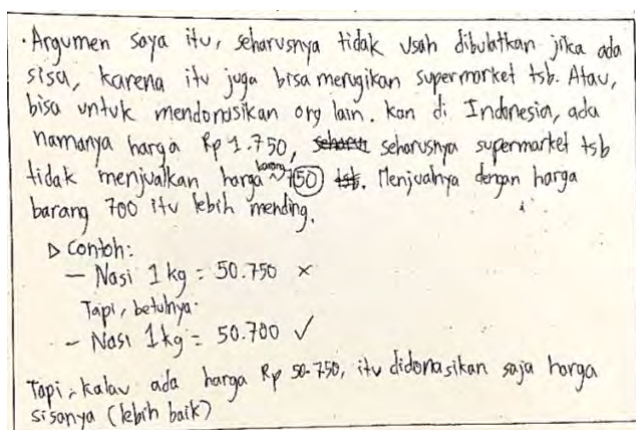 · Argumen saya itu, seharusnya tidak usah dibulatkan jika ada
sisa, karena itu juga bisa merugikan supermarket tsb. Atau,
bisa untuk mendonasikan org lain. Kan di Indonesia, ada
namanya harga Rp 1.750, seharusnya supermarket tsb
tidak menjualkan harga barang 750. Menjualnya dengan harga
barang 700 itu lebih mending.
▷ Contoh:
– Nasi 1 kg = 50.750 ×
Tapi, betulnya:
– Nasi 1 kg = 50.700 ✓
Tapi, kalau ada harga Rp 50.750, itu didonasikan saja harga
sisanya (lebih baik)